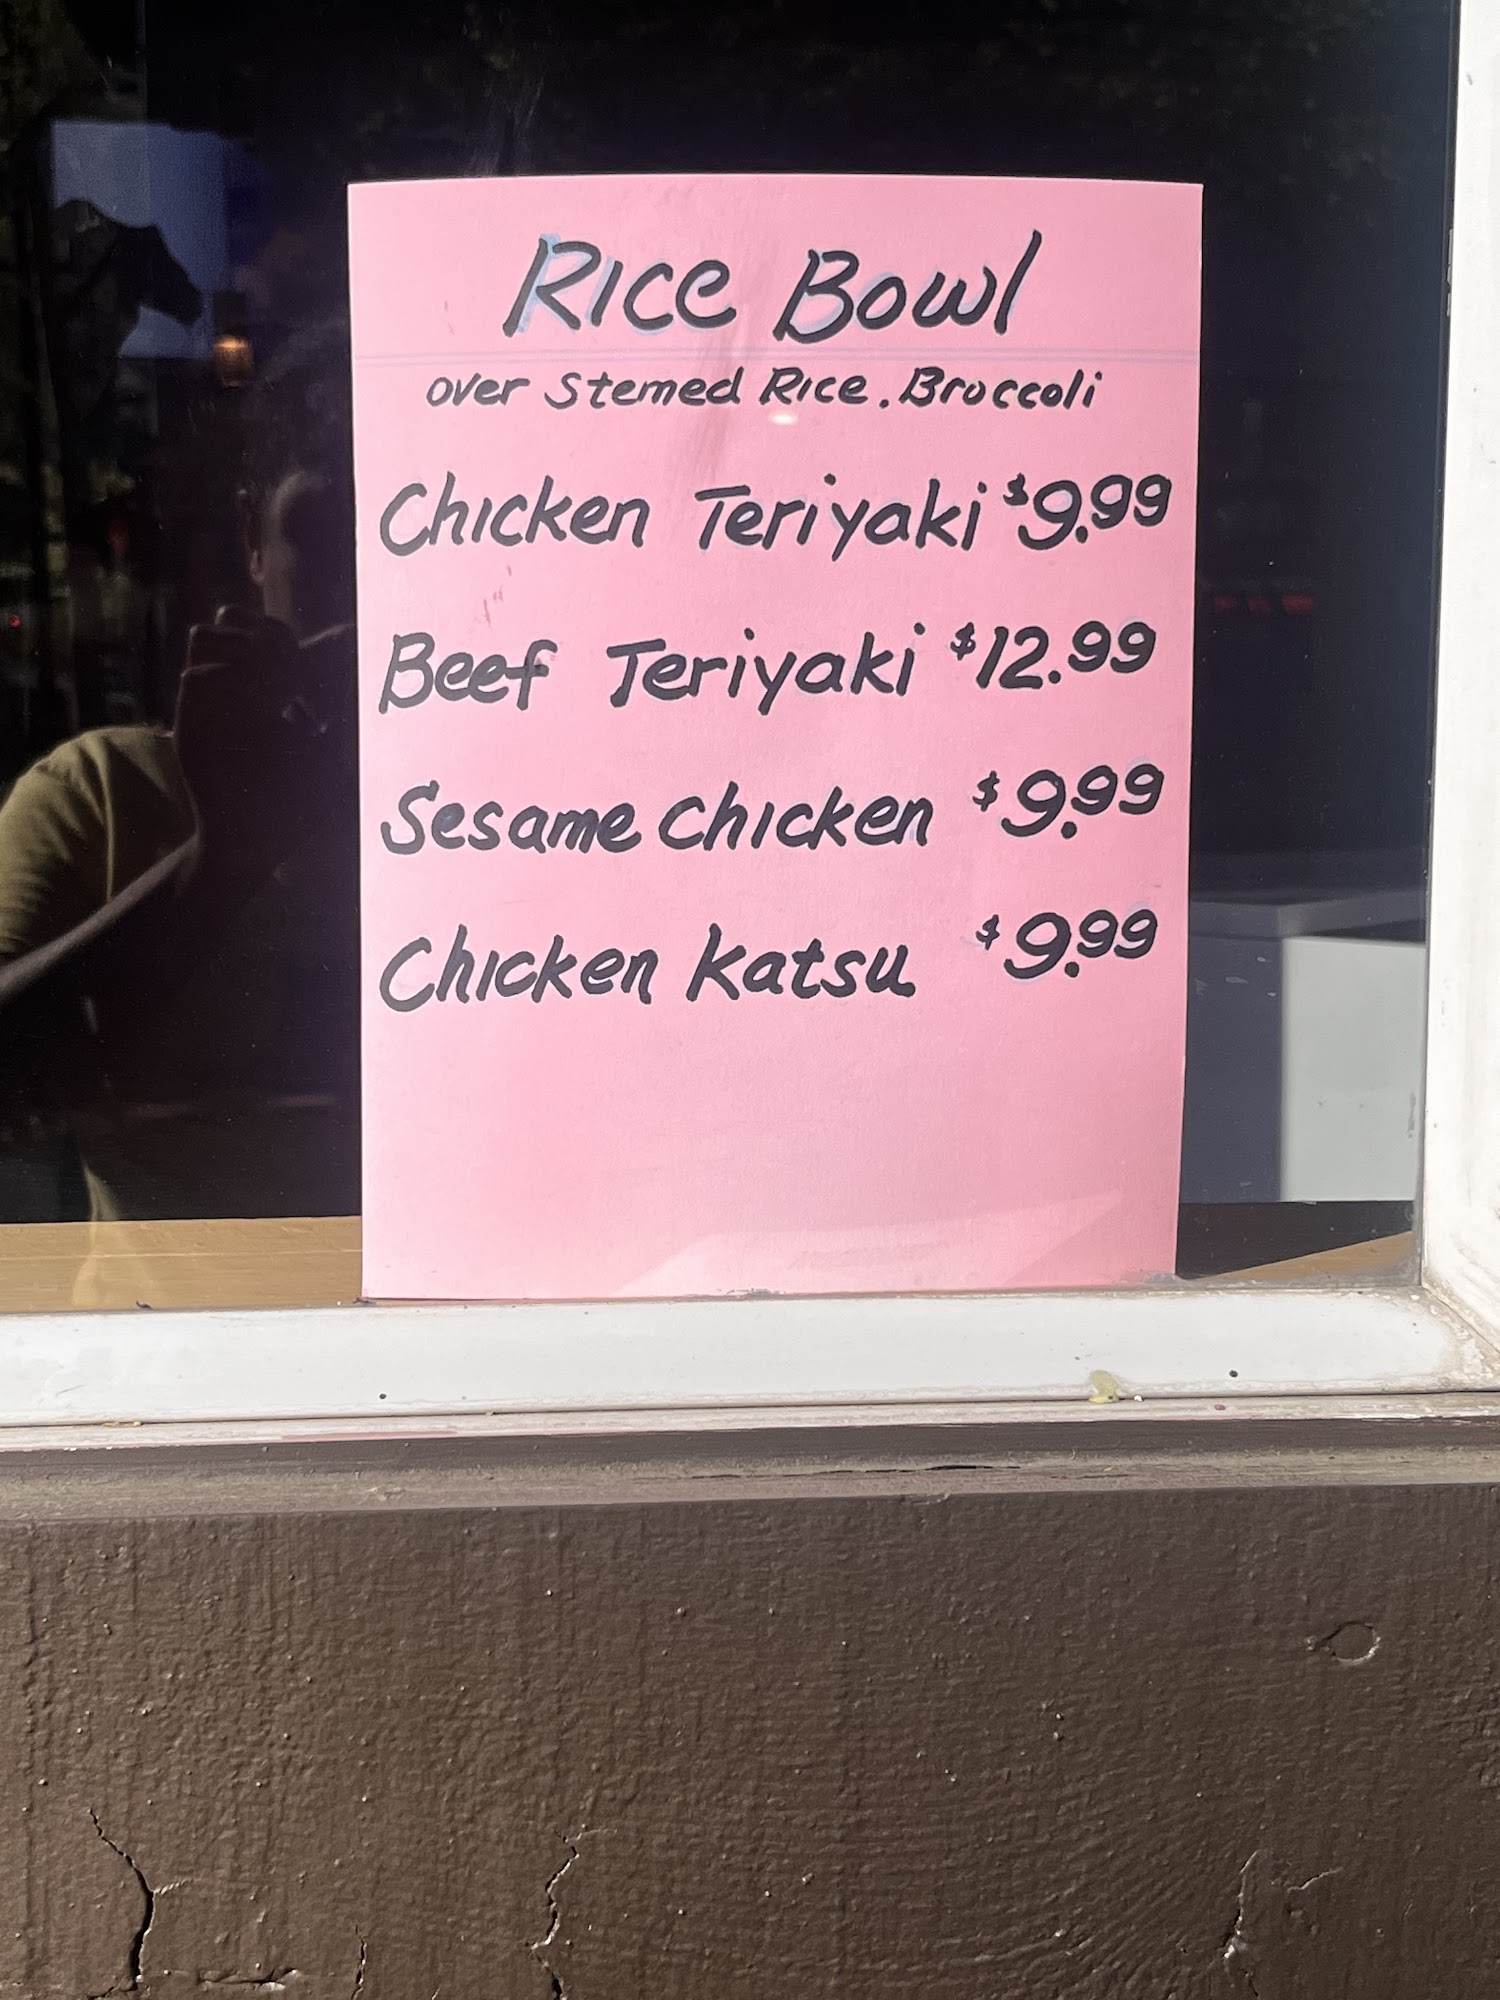 Rice Bowl
over Stemed Rice. Broccoli
Chicken Teriyaki $9.99
Beef Teriyaki $12.99
Sesame Chicken $9.99
Chicken Katsu $9.99